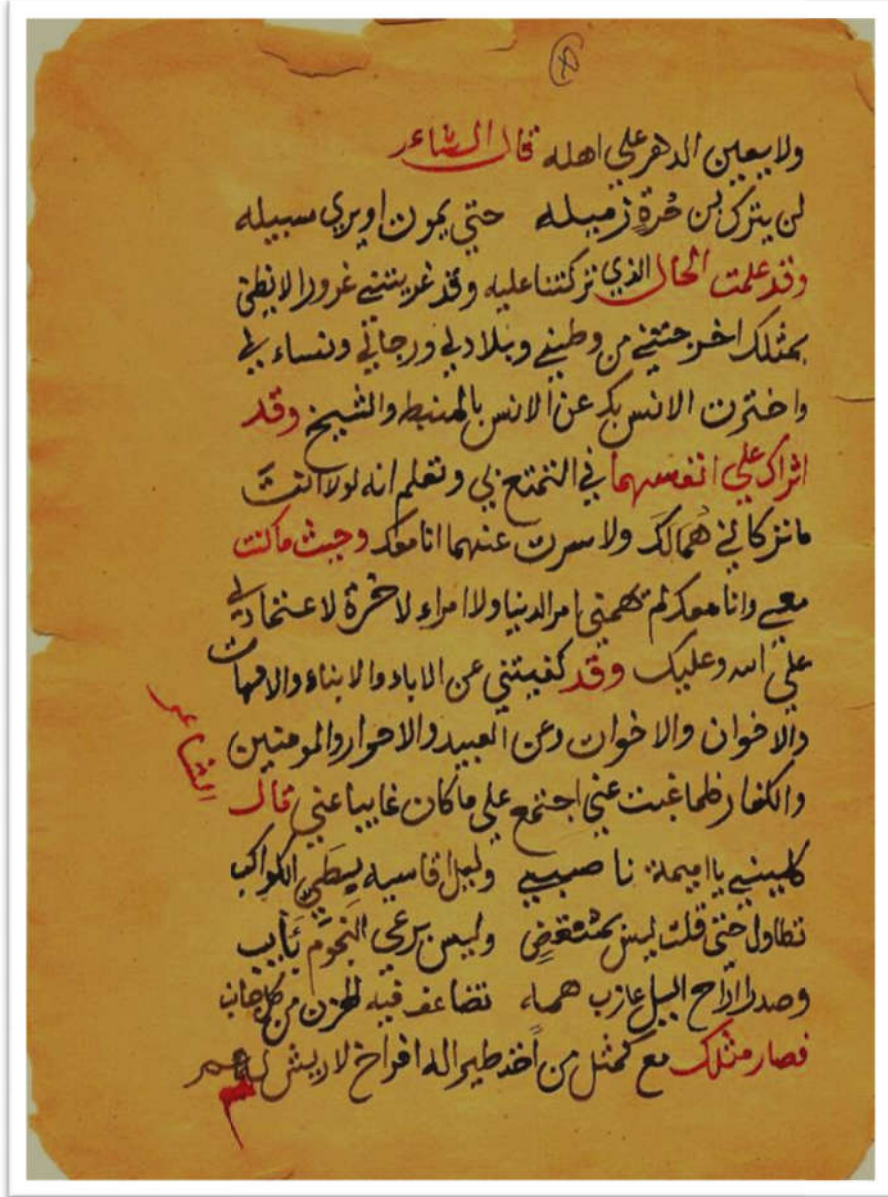 ولا يعين الدهر علي اهله قال الشاعر
لن يترك بن حرة زميله حتي يموت او يري سبيله
وقد علمت الحال الذي تركتنا عليه وقد غريتني غرورا لا يظن
بمثلك اخرجتني من وطيني وبلادي ورجاني ونساء ني
واخترت الانس بك عن الانس بالهنبط والشيخ وقد
اثراك علي انفسهما في التمتع بي وتعلم انه لولا انت
ما تركاني همالك ولا سرت عنهما انا معك وحيث ما كنت
معي وانا معك لم تهمني امر الدنيا ولا امراء لاخرة لاعتمادي
علي الله وعليك وقد كفيتني عن الاباد والابناء والامهات
والاخوان والاخوات وعن العبيد والاحرار والمومنين
والكفار فلما غبت عني اجتمع علي ما كان غايبا عني قال
الشاعر
كليني يا اميمة نا صبيي وليل اقاسيه بطي الكواكب
تطاول حتي قلت ليس بمنقض وليس يرعي النجوم بايب
وصدرا اراح اليل عازب همه تضاعف فيه الحزن من كل جانب
فصار مثلك مع كمثل من اخذ طيرا له افراخ لا ريش لهم